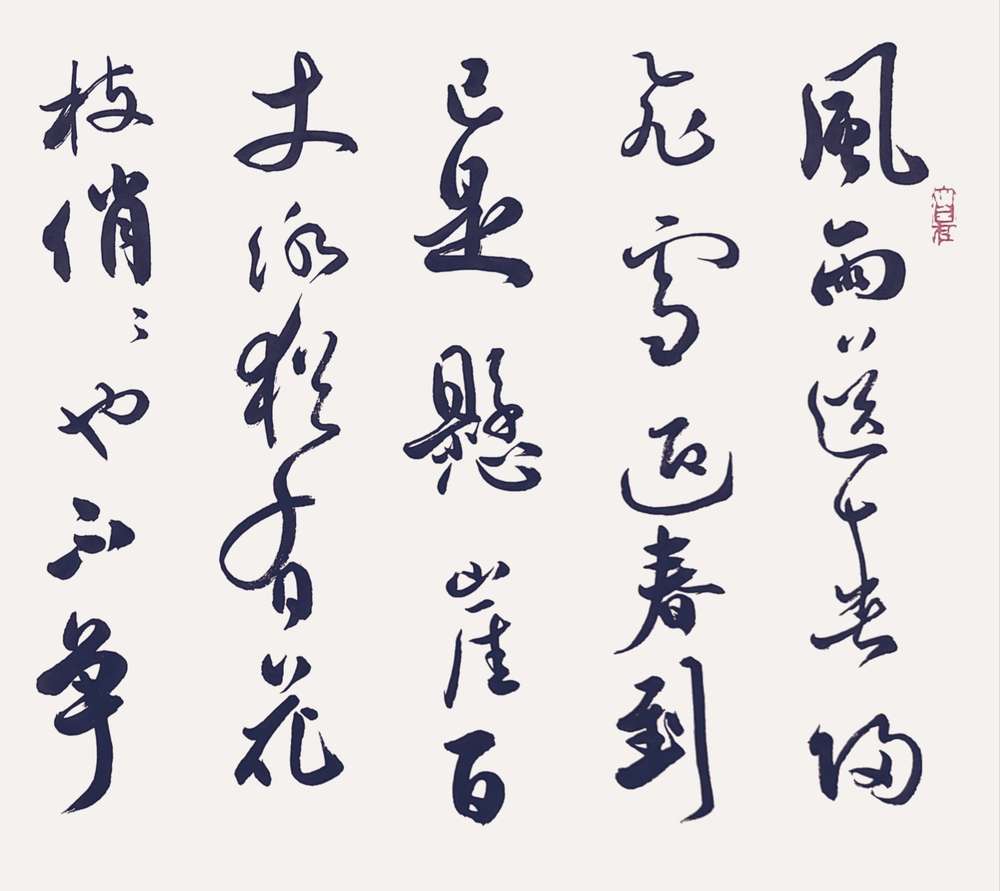 風雨送春歸
飛雪迎春到
已是懸崖百
丈冰猶有花
枝俏〻也不爭